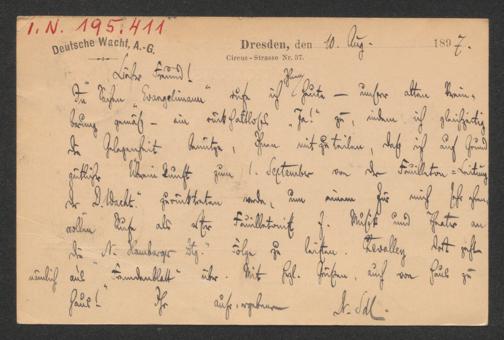 I.N. 195.411
Deutsche Wacht, A.-G.
Dresden, den 10. Aug. 1897.
Circus-Strasse Nr. 37.
Lieber Freund!
In Sachen „Evangelimann“ rufe ich Ihnen heute — unserer alten Verein-
barung gemäß — ein rückhaltloses „Ja!“ zu, indem ich gleichzeitig
die Gelegenheit benütze, Ihnen mitzuteilen, daß ich auf Grund
gütlicher Übereinkunft zum 1. September von der Feuilleton-Leitung
der D. Wacht. zurücktreten werde, um einem für mich sehr ehren-
vollen Rufe als erster Feuilletonist f. Musik und Theater an
die „N. Hamburger Ztg.“ Folge zu leisten. Chevalley dort geht
nämlich ans „Fremdenblatt“ über. Mit hzl. Grüßen, auch von Haus zu
Haus! Ihr aufr. ergebener
A. Sdl.